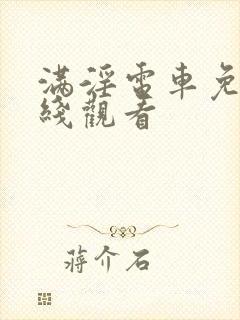 满淫電車免
綫觀看
蒋介石